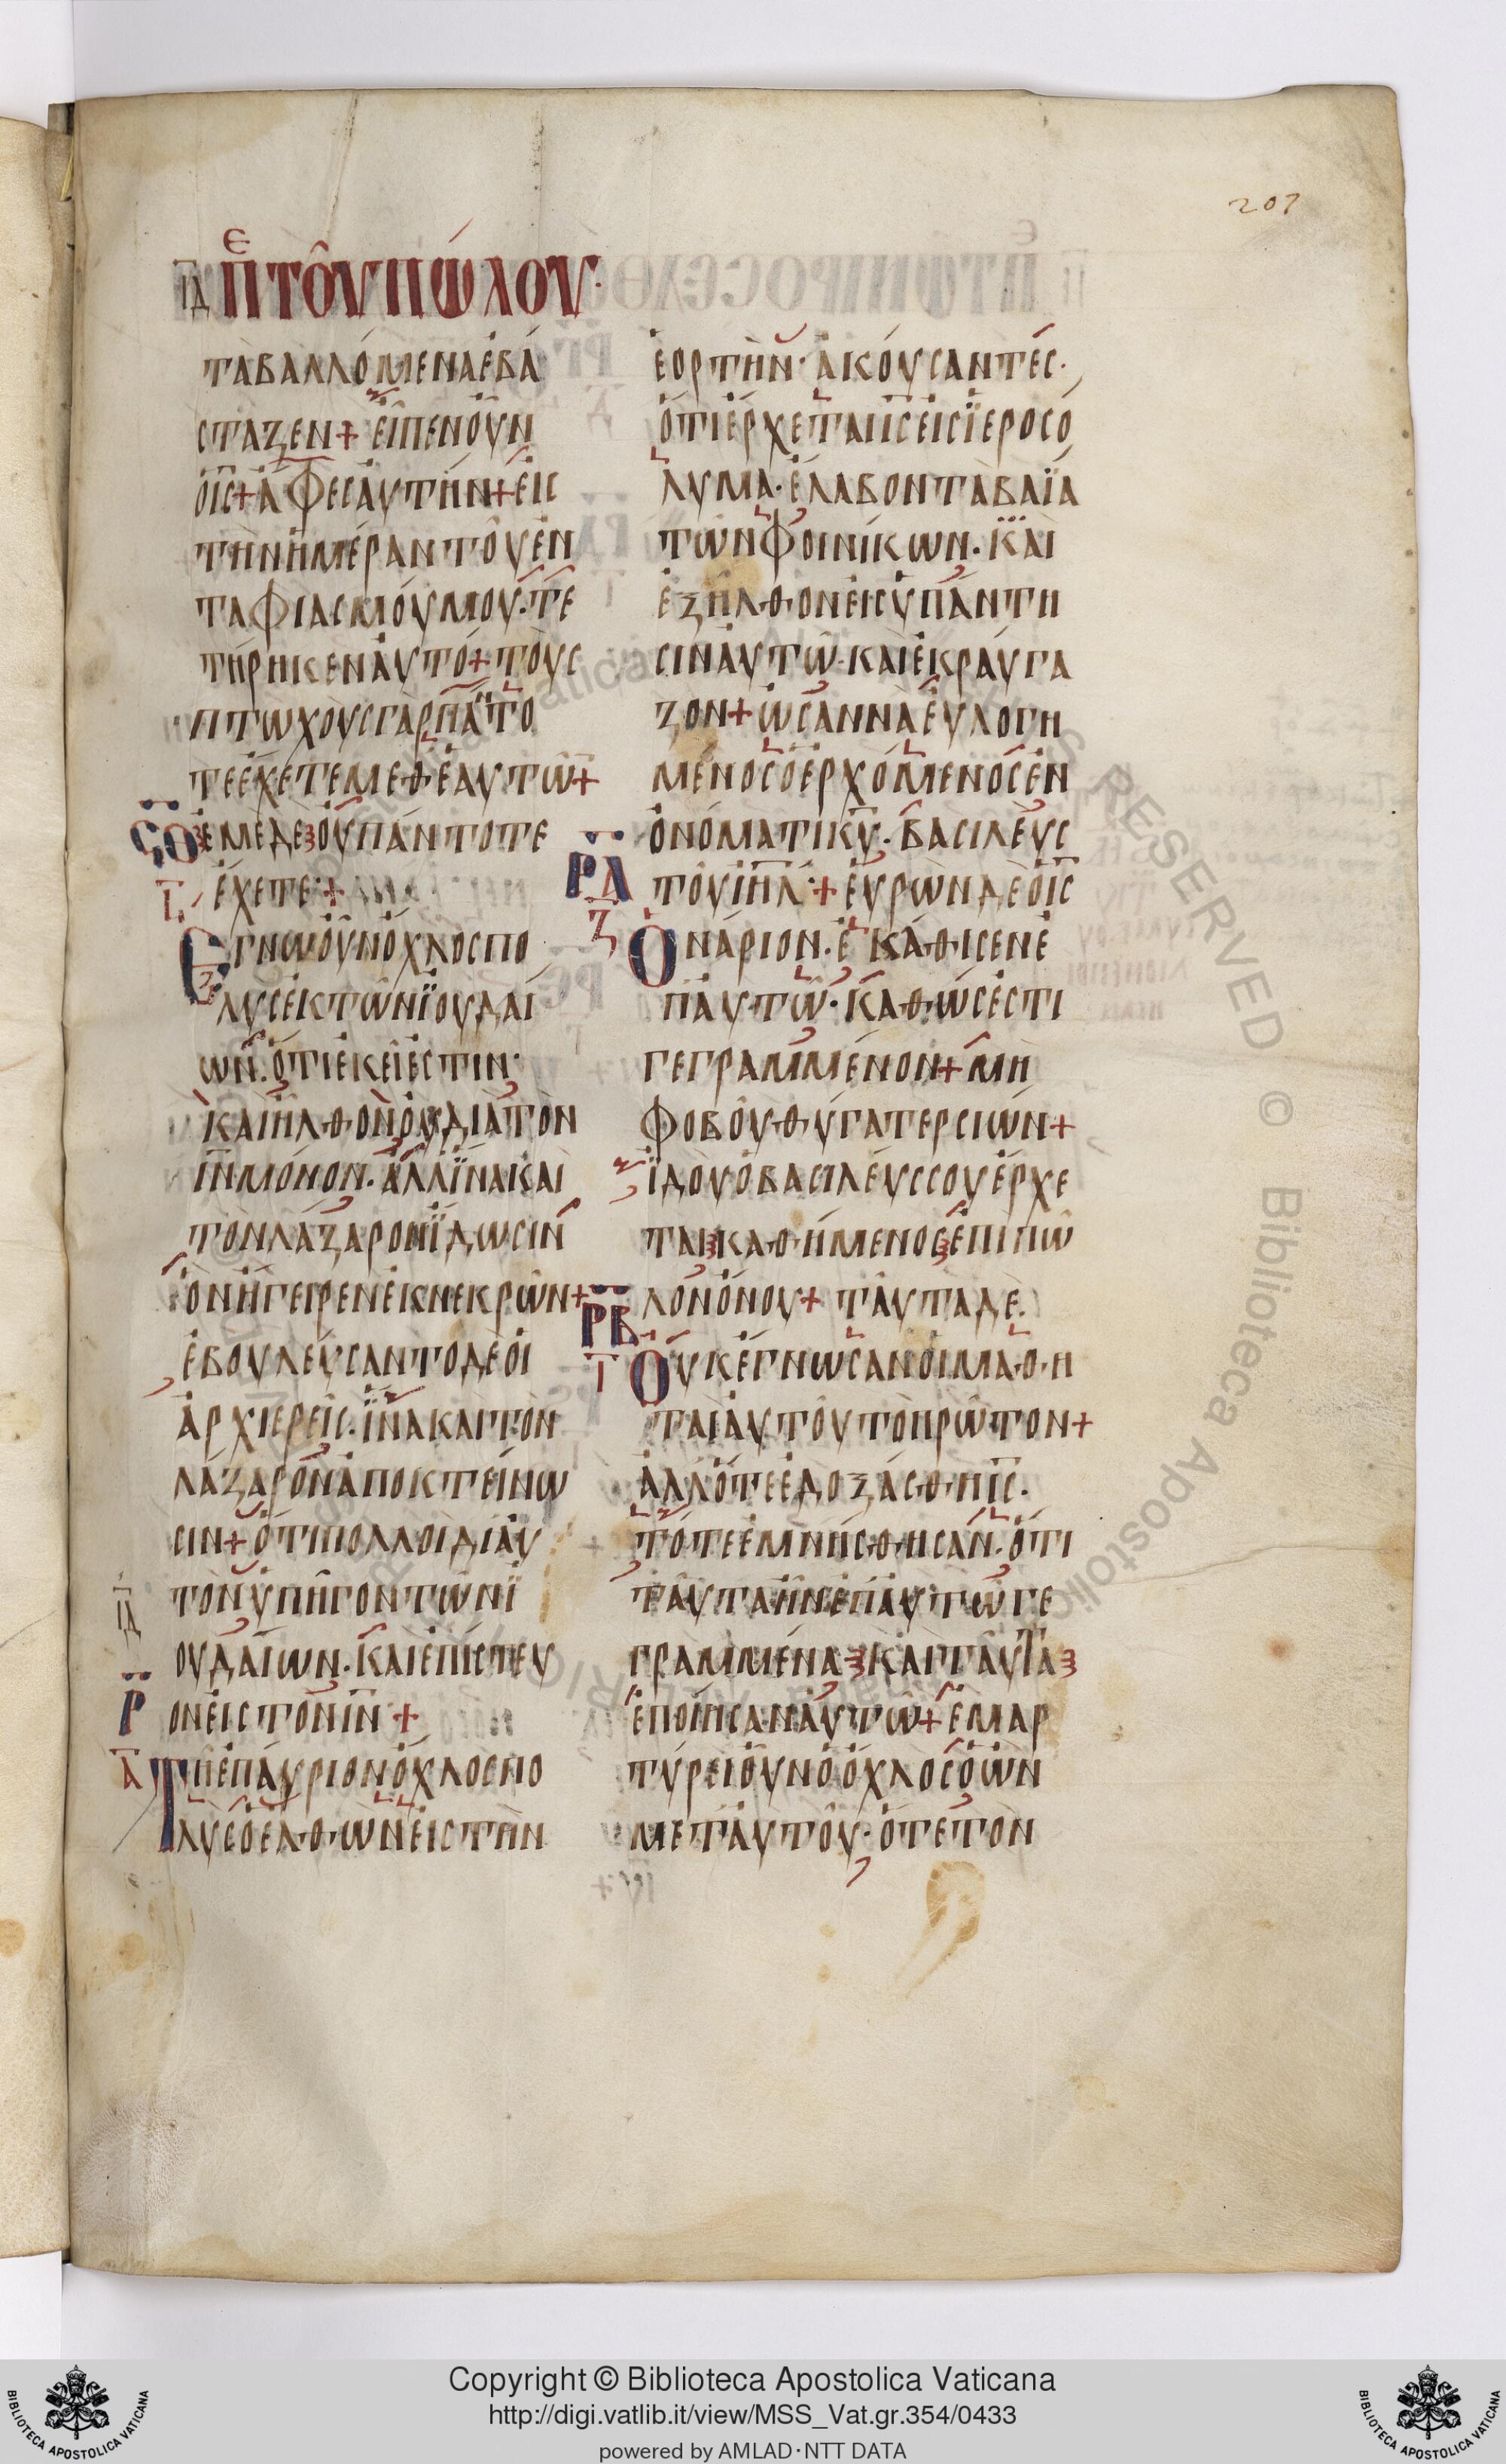 207
ΙΔ ΠΕ ΤΟΥ ΠΩΛΟΥ·
ΤΑΒΑΛΛΟΜΕΝΑΕΒΑ
ΣΤΑΖΕΝ+ ΕΙΠΕΝΟΥΝ
ΟΙΣ+ΑΦΕΣΑΥΤΗΝ+ΕΙΣ
ΤΗΝΗΜΕΡΑΝΤΟΥΕΝ
ΤΑΦΙΑΣΜΟΥΜΟΥ·ΤΕ
ΤΗΡΗΚΕΝΑΥΤΟ+ΤΟΥΣ
ΠΤΩΧΟΥΣΓΑΡΠΑΤΟ
ΤΕΕΧΕΤΕΜΕΘΕΑΥΤΩ+
ϞΘ ΕΜΕΔΕΟΥΠΑΝΤΟΤΕ
ΕΧΕΤΕ·+
ΕΓΝΩΟΥΝΟΧΛΟΣΠΟ
ΛΥΣΕΚΤΩΝΪΟΥΔΑΙ
ΩΝ·ΟΤΙΕΚΕΙΕΣΤΙΝ·
ΚΑΙΗΛΘΟΝΟΥΔΙΑΤΟΝ
ΙΝΜΟΝΟΝ·ΑΛΛΪΝΑΚΑΙ
ΤΟΝΛΑΖΑΡΟΝΪΔΩΣΙΝ
ΟΝΗΓΕΙΡΕΝΕΚΝΕΚΡΩΝ+
ΕΒΟΥΛΕΥΣΑΝΤΟΔΕΟΙ
ΑΡΧΙΕΡΕΙΣ·ΪΝΑΚΑΙΤΟΝ
ΛΑΖΑΡΟΝΑΠΟΚΤΕΙΝΩ
ΣΙΝ+ΟΤΙΠΟΛΛΟΙΔΙΑΥ
ΤΟΝΥΠΗΓΟΝΤΩΝΪ
ΟΥΔΑΙΩΝ·ΚΑΙΕΠΙΣΤΕΥ
Ρ ΟΝΕΙΣΤΟΝΙΝ+
Α ΤΗΕΠΑΥΡΙΟΝΟΧΛΟΣΠΟ
ΛΥΣΟΕΛΘΩΝΕΙΣΤΗΝ
ΕΟΡΤΗΝ·ΑΚΟΥΣΑΝΤΕΣ·
ΟΤΙΕΡΧΕΤΑΙΙΣΕΙΣΪΕΡΟΣΟ
ΛΥΜΑ·ΕΛΑΒΟΝΤΑΒΑΪΑ
ΤΩΝΦΟΙΝΙΚΩΝ·ΚΑΙ
ΕΞΗΛΘΟΝΕΙΣΥΠΑΝΤΗ
ΣΙΝΑΥΤΩ·ΚΑΙΕΚΡΑΥΓΑ
ΖΟΝ+ΩΣΑΝΝΑΕΥΛΟΓΗ
ΜΕΝΟΣΟΕΡΧΟΜΕΝΟΣΕΝ
ΟΝΟΜΑΤΙΚΥ·ΒΑΣΙΛΕΥΣ
ΡΑ ΤΟΥΙΗΛ·+ΕΥΡΩΝΔΕΟΙΣ
Ζ ΟΝΑΡΙΟΝ·ΕΚΑΘΙΣΕΝΕ
ΠΑΥΤΩ·ΚΑΘΩΣΕΣΤΙ
ΓΕΓΡΑΜΜΕΝΟΝ+ΜΗ
ΦΟΒΟΥΘΥΓΑΤΕΡΣΙΩΝ+
ΪΔΟΥΟΒΑΣΙΛΕΥΣΣΟΥΕΡΧΕ
ΤΑΙΚΑΘΗΜΕΝΟΣΕΠΙΠΩ
ΡΒ ΛΟΝΟΝΟΥ+ΤΑΥΤΑΔΕ·
Τ ΟΥΚΕΓΝΩΣΑΝΟΙΜΑΘΗ
ΤΑΙΑΥΤΟΥΤΟΠΡΩΤΟΝ+
ΑΛΛΟΤΕΕΔΟΞΑΣΘΗΙΣ·
ΤΟΤΕΕΜΝΗΣΘΗΣΑΝ·ΟΤΙ
ΤΑΥΤΑΗΝΕΠΑΥΤΩΓΕ
ΓΡΑΜΜΕΝΑΚΑΙΤΑΥΤΑ
ΕΠΟΙΗΣΑΝΑΥΤΩ+ΕΜΑΡ
ΤΥΡΕΙΟΥΝΟΟΧΛΟΣΟΩΝ
ΜΕΤΑΥΤΟΥ·ΟΤΕΤΟΝ
RESERVED © Biblioteca Apostolica
Copyright © Biblioteca Apostolica Vaticana
http://digi.vatlib.it/view/MSS_Vat.gr.354/0433
powered by AMLAD·NTT DATA
BIBLIOTECA APOSTOLICA VATICANA
BIBLIOTECA APOSTOLICA VATICANA